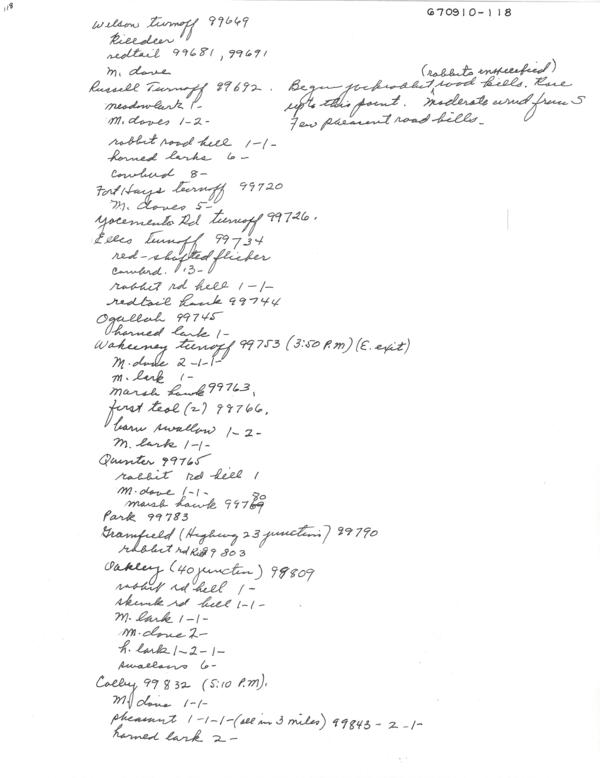 118
670910-118
Wilson turnoff 99669
Killdeer
redtail 99681, 99691
M. dove
Russell Turnoff 99692. Begin jackrabbit road kills. Rare
(rabbits unspecified)
meadowlark 1- up to this point. Moderate wind from S
M. doves 1-2- Few pheasant road kills-
rabbit road kill 1-1-
horned larks 6-
cowbird 8-
Fort Hays turnoff 99720
M. doves 5-
Yocemento Rd turnoff 99726.
Ellis Turnoff 99734
red-shafted flicker
cowbrd. 13-
rabbit rd kill 1-1-
redtail hawk 99744
Ogallah 99745
horned lark 1-
Wakeeney turnoff 99753 (3:50 P.M) (E. exit)
M. dove 2-1-1-
m. lark 1-
marsh hawk 99763,
first teal (2) 99766,
barn swallow 1-2-
M. lark 1-1-
Quinter 99765
rabbit rd kill 1
M. dove 1-1-
marsh hawk 99780
Park 99783
Grainfield (Highway 23 junction) 99790
rabbit rd kill 99803
Oakley (40 junction) 99809
rabbit rd kill 1-
skunk rd kill 1-1-
M. lark 1-1-
M. dove 2-
h. lark 1-2-1-
swallows 6-
Colby 99832 (5:10 P.M).
M. dove 1-1-
pheasant 1-1-1-(all in 3 miles) 99843-2-1-
horned lark 2-